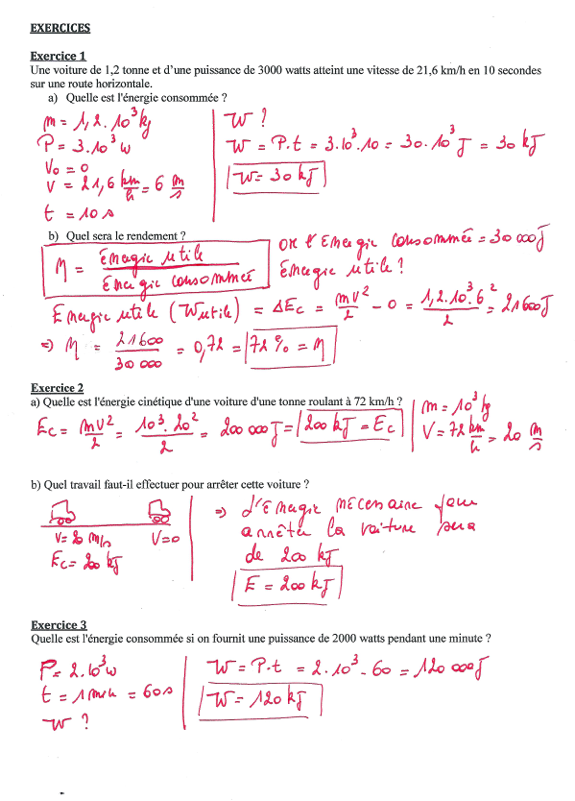 EXERCICES
Exercice 1
Une voiture de 1,2 tonne et d'une puissance de 3000 watts atteint une vitesse de 21,6 km/h en 10 secondes
sur une route horizontale.
a) Quelle est l'énergie consommée ?
m = 1,2.10³ kg
P = 3.10³ w
V₀ = 0
V = 21,6 km/h = 6 m/s
t = 10 s
W ?
W = P.t = 3.10³.10 = 30.10³ J = 30 kJ
W = 30 kJ
b) Quel sera le rendement ?
η = Énergie utile / Énergie consommée
or l'Énergie consommée = 30 000J
Énergie utile ?
Énergie utile (Wutile) = ΔEc = mV²/2 - 0 = 1,2.10³.6²/2 = 21600J
=> η = 21600/30 000 = 0,72 = 72 % = η
Exercice 2
a) Quelle est l'énergie cinétique d'une voiture d'une tonne roulant à 72 km/h ?
Ec = mV²/2 = 10³.20²/2 = 200 000J = 200 kJ = Ec
m = 10³ kg
V = 72 km/h = 20 m/s
b) Quel travail faut-il effectuer pour arrêter cette voiture ?
V = 20 m/s
V=0
Ec = 200 kJ
=> l'Énergie nécessaire pour
arrêter la voiture sera
de 200 kJ
E = 200 kJ
Exercice 3
Quelle est l'énergie consommée si on fournit une puissance de 2000 watts pendant une minute ?
P = 2.10³ w
t = 1 min = 60s
W ?
W = P.t = 2.10³.60 = 120 000J
W = 120 kJ